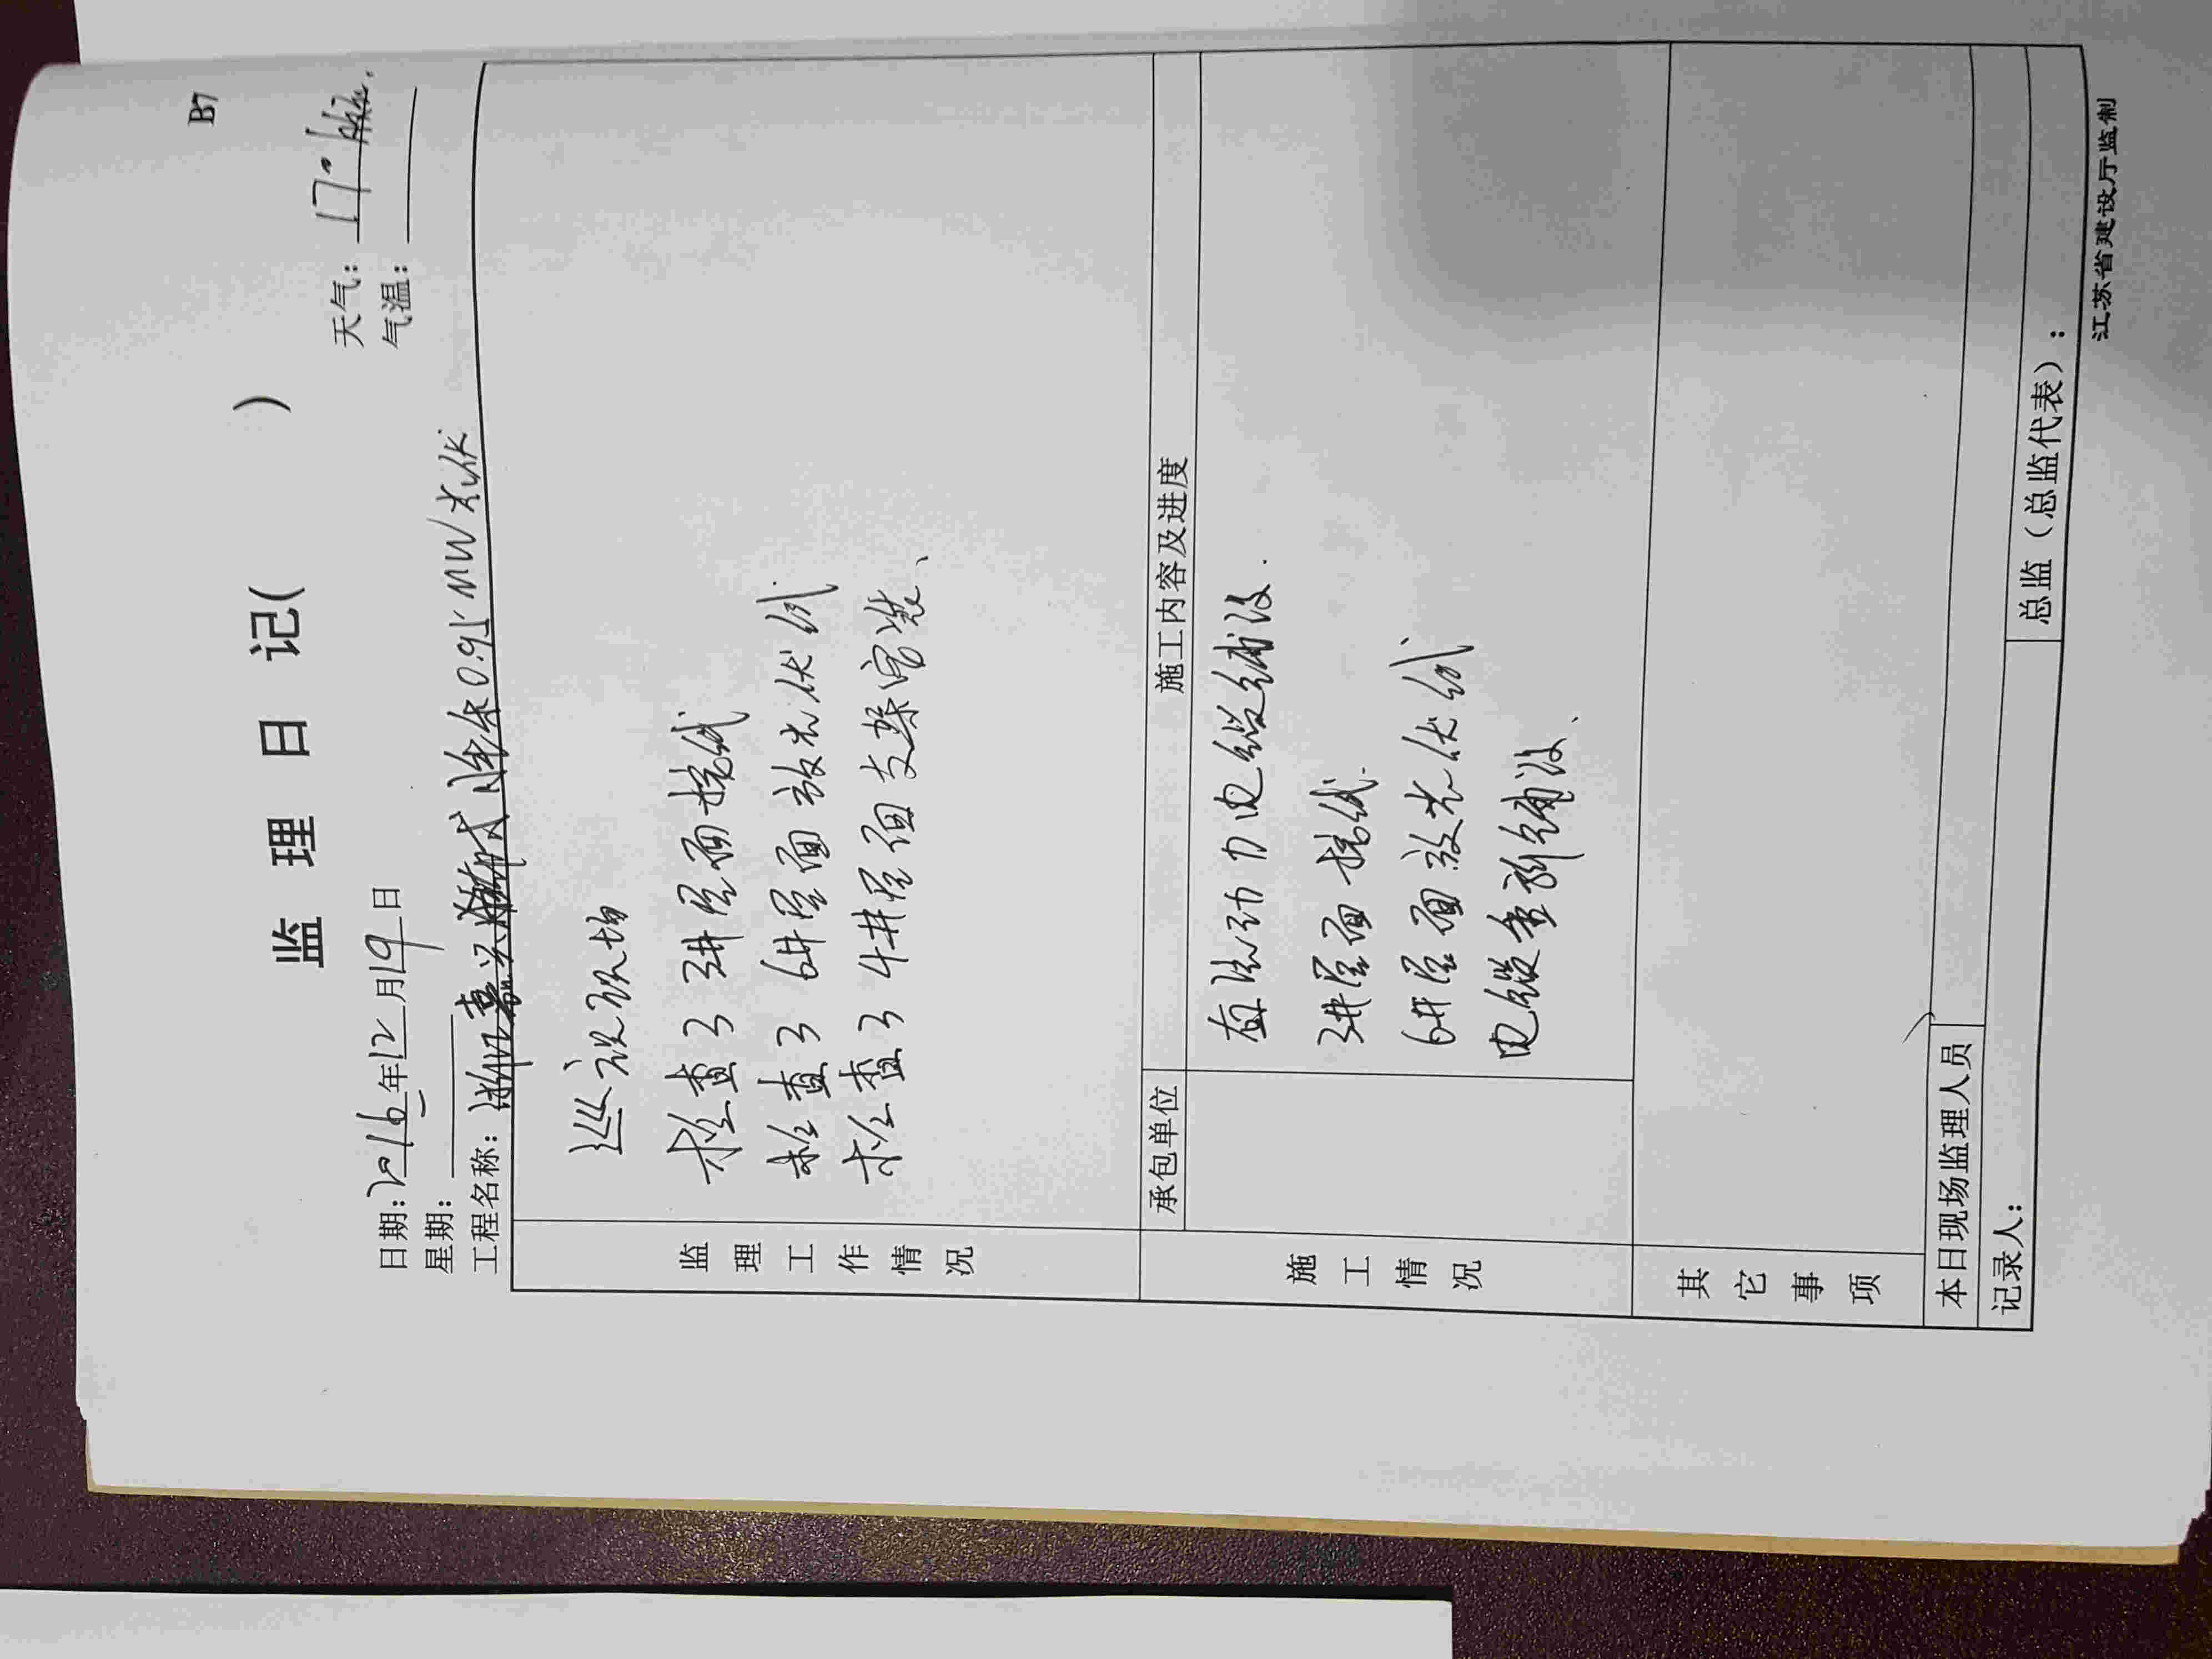 B7
监 理 日 记( )
日期:2016年12月19日 天气: 17°
星期: 气温:
工程名称: 浙江嘉兴 0.95MW光伏
监理工作情况
巡视现场
检查了3#屋面接线
检查了6#屋面放光伏线
检查了4#屋面支架安装、
承包单位 施工内容及进度
施工情况
直流动力电缆铺设.
3#屋面接线.
6#屋面放光伏线、
电缆重新铺设、
其它事项
本日现场监理人员
记录人: 总监（总监代表）:
江苏省建设厅监制